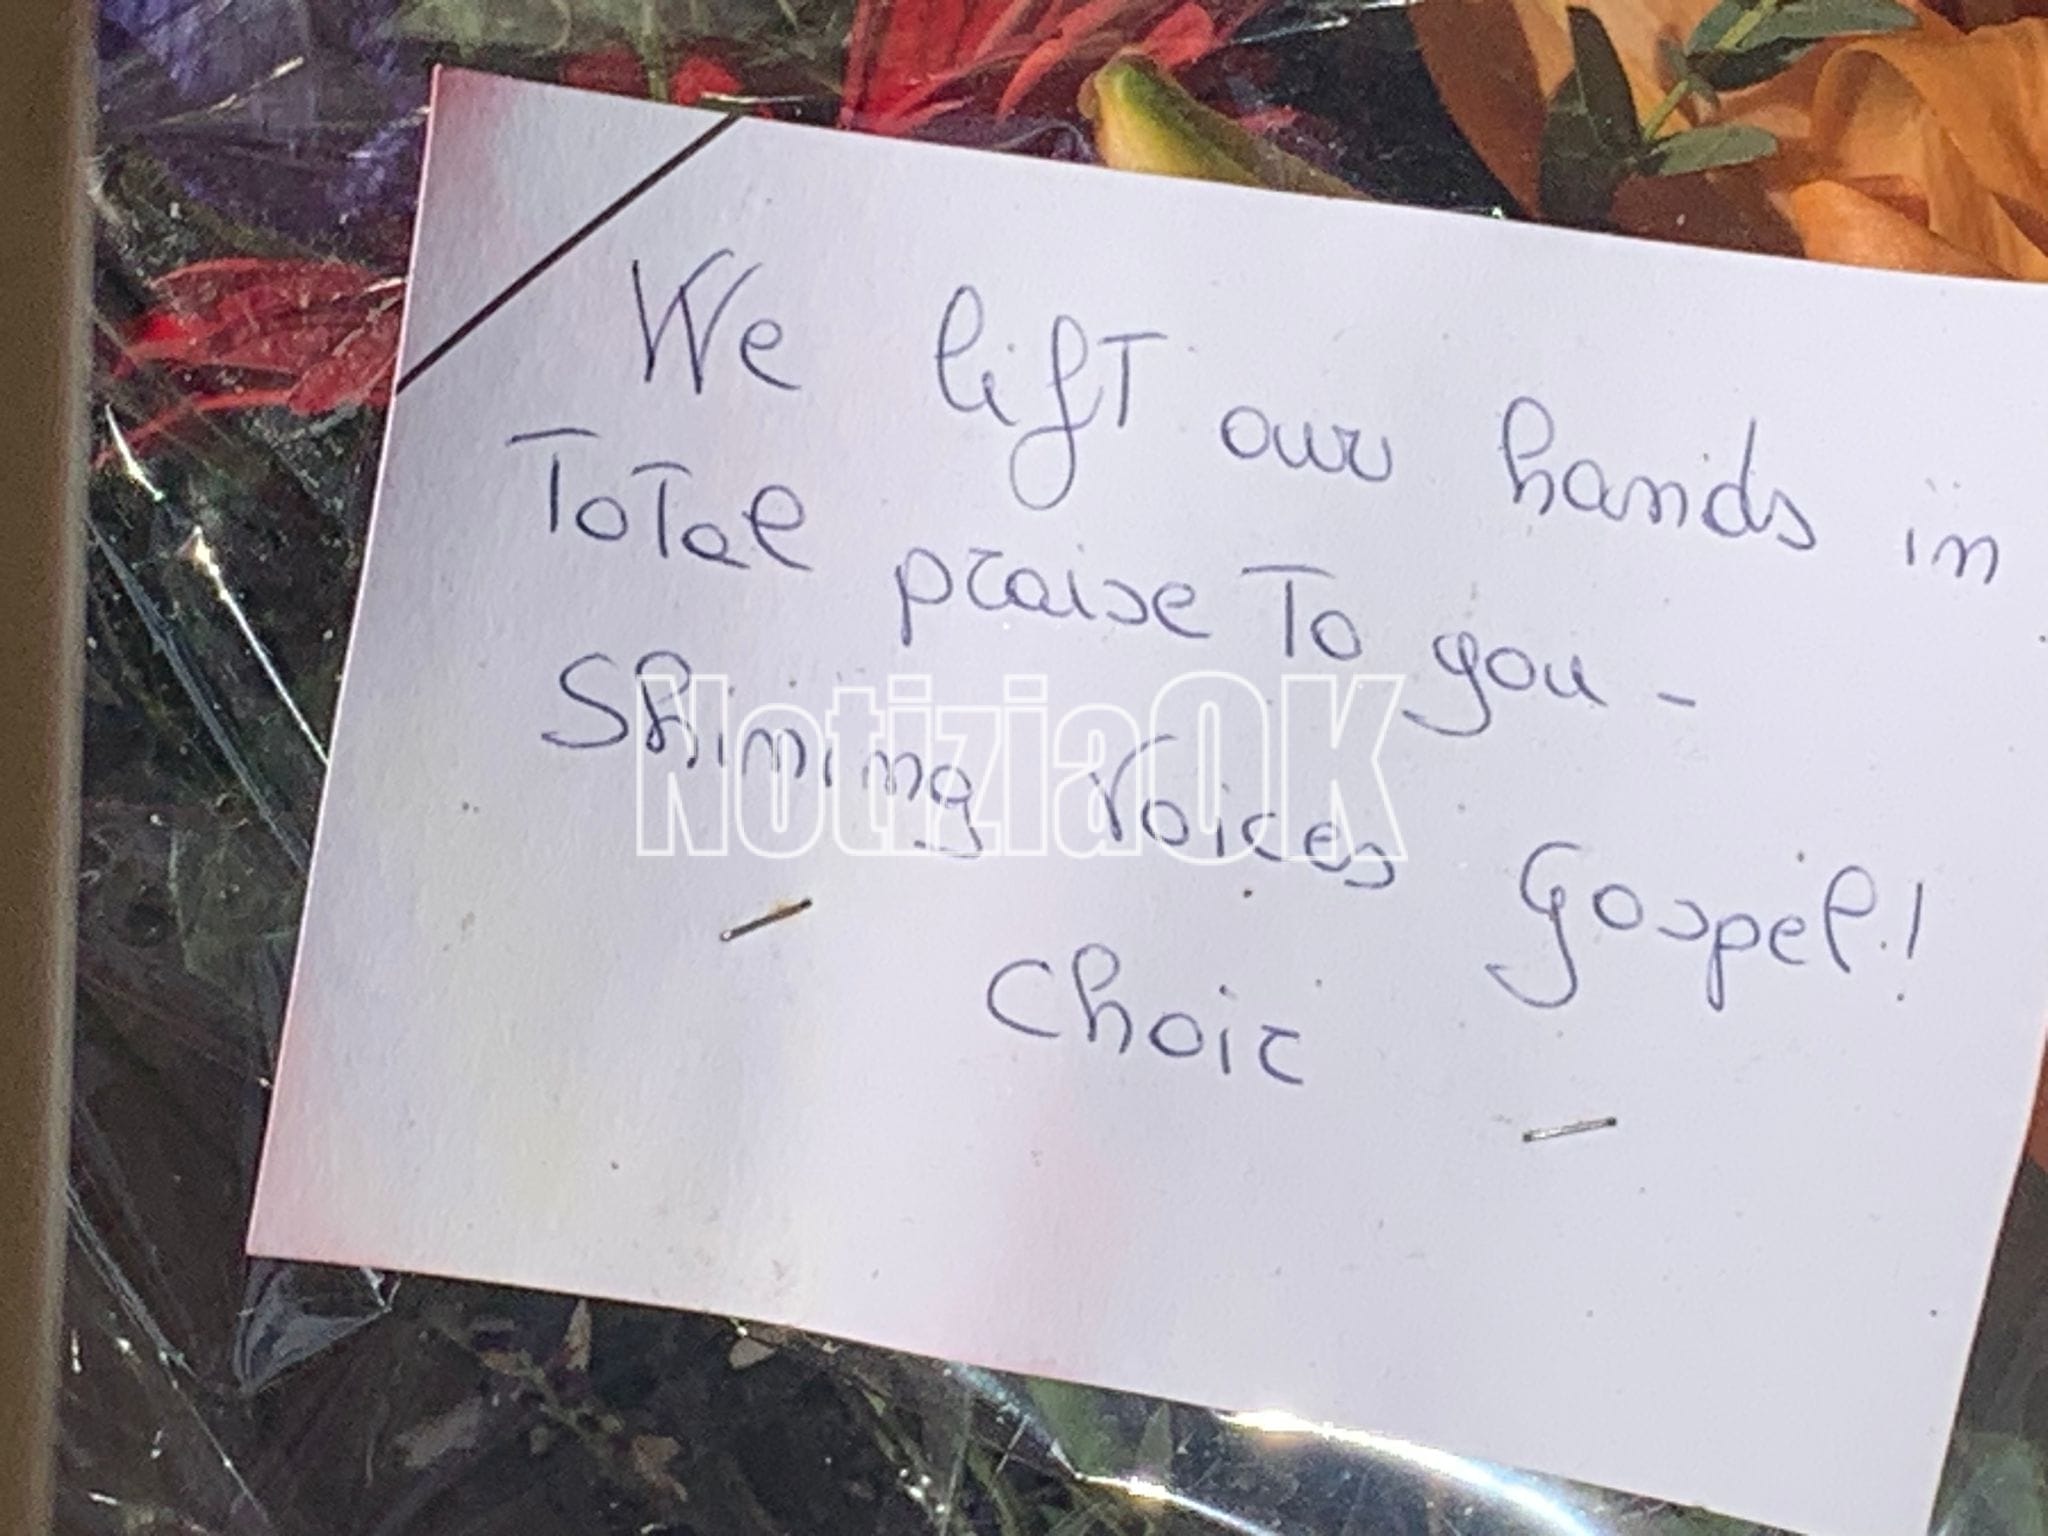 We lift our hands in
Total praise To you -
Shining Voices Gospel!
Choir
NotiziaOK